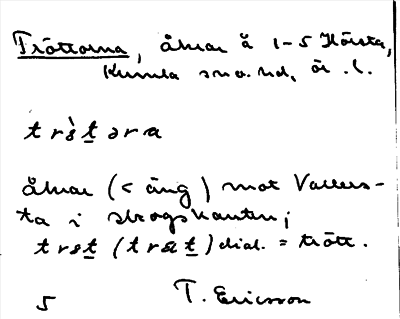 Tröttorna, åkrar å 1-5 Hörsta,
Kumla sn o. hd, ör. l.
trè̀t̲əra
åkrar (< äng) mot Vallers-
ta i skogskanten;
tret̲ (træt̲) dial. = trött.
5 T. Ericsson